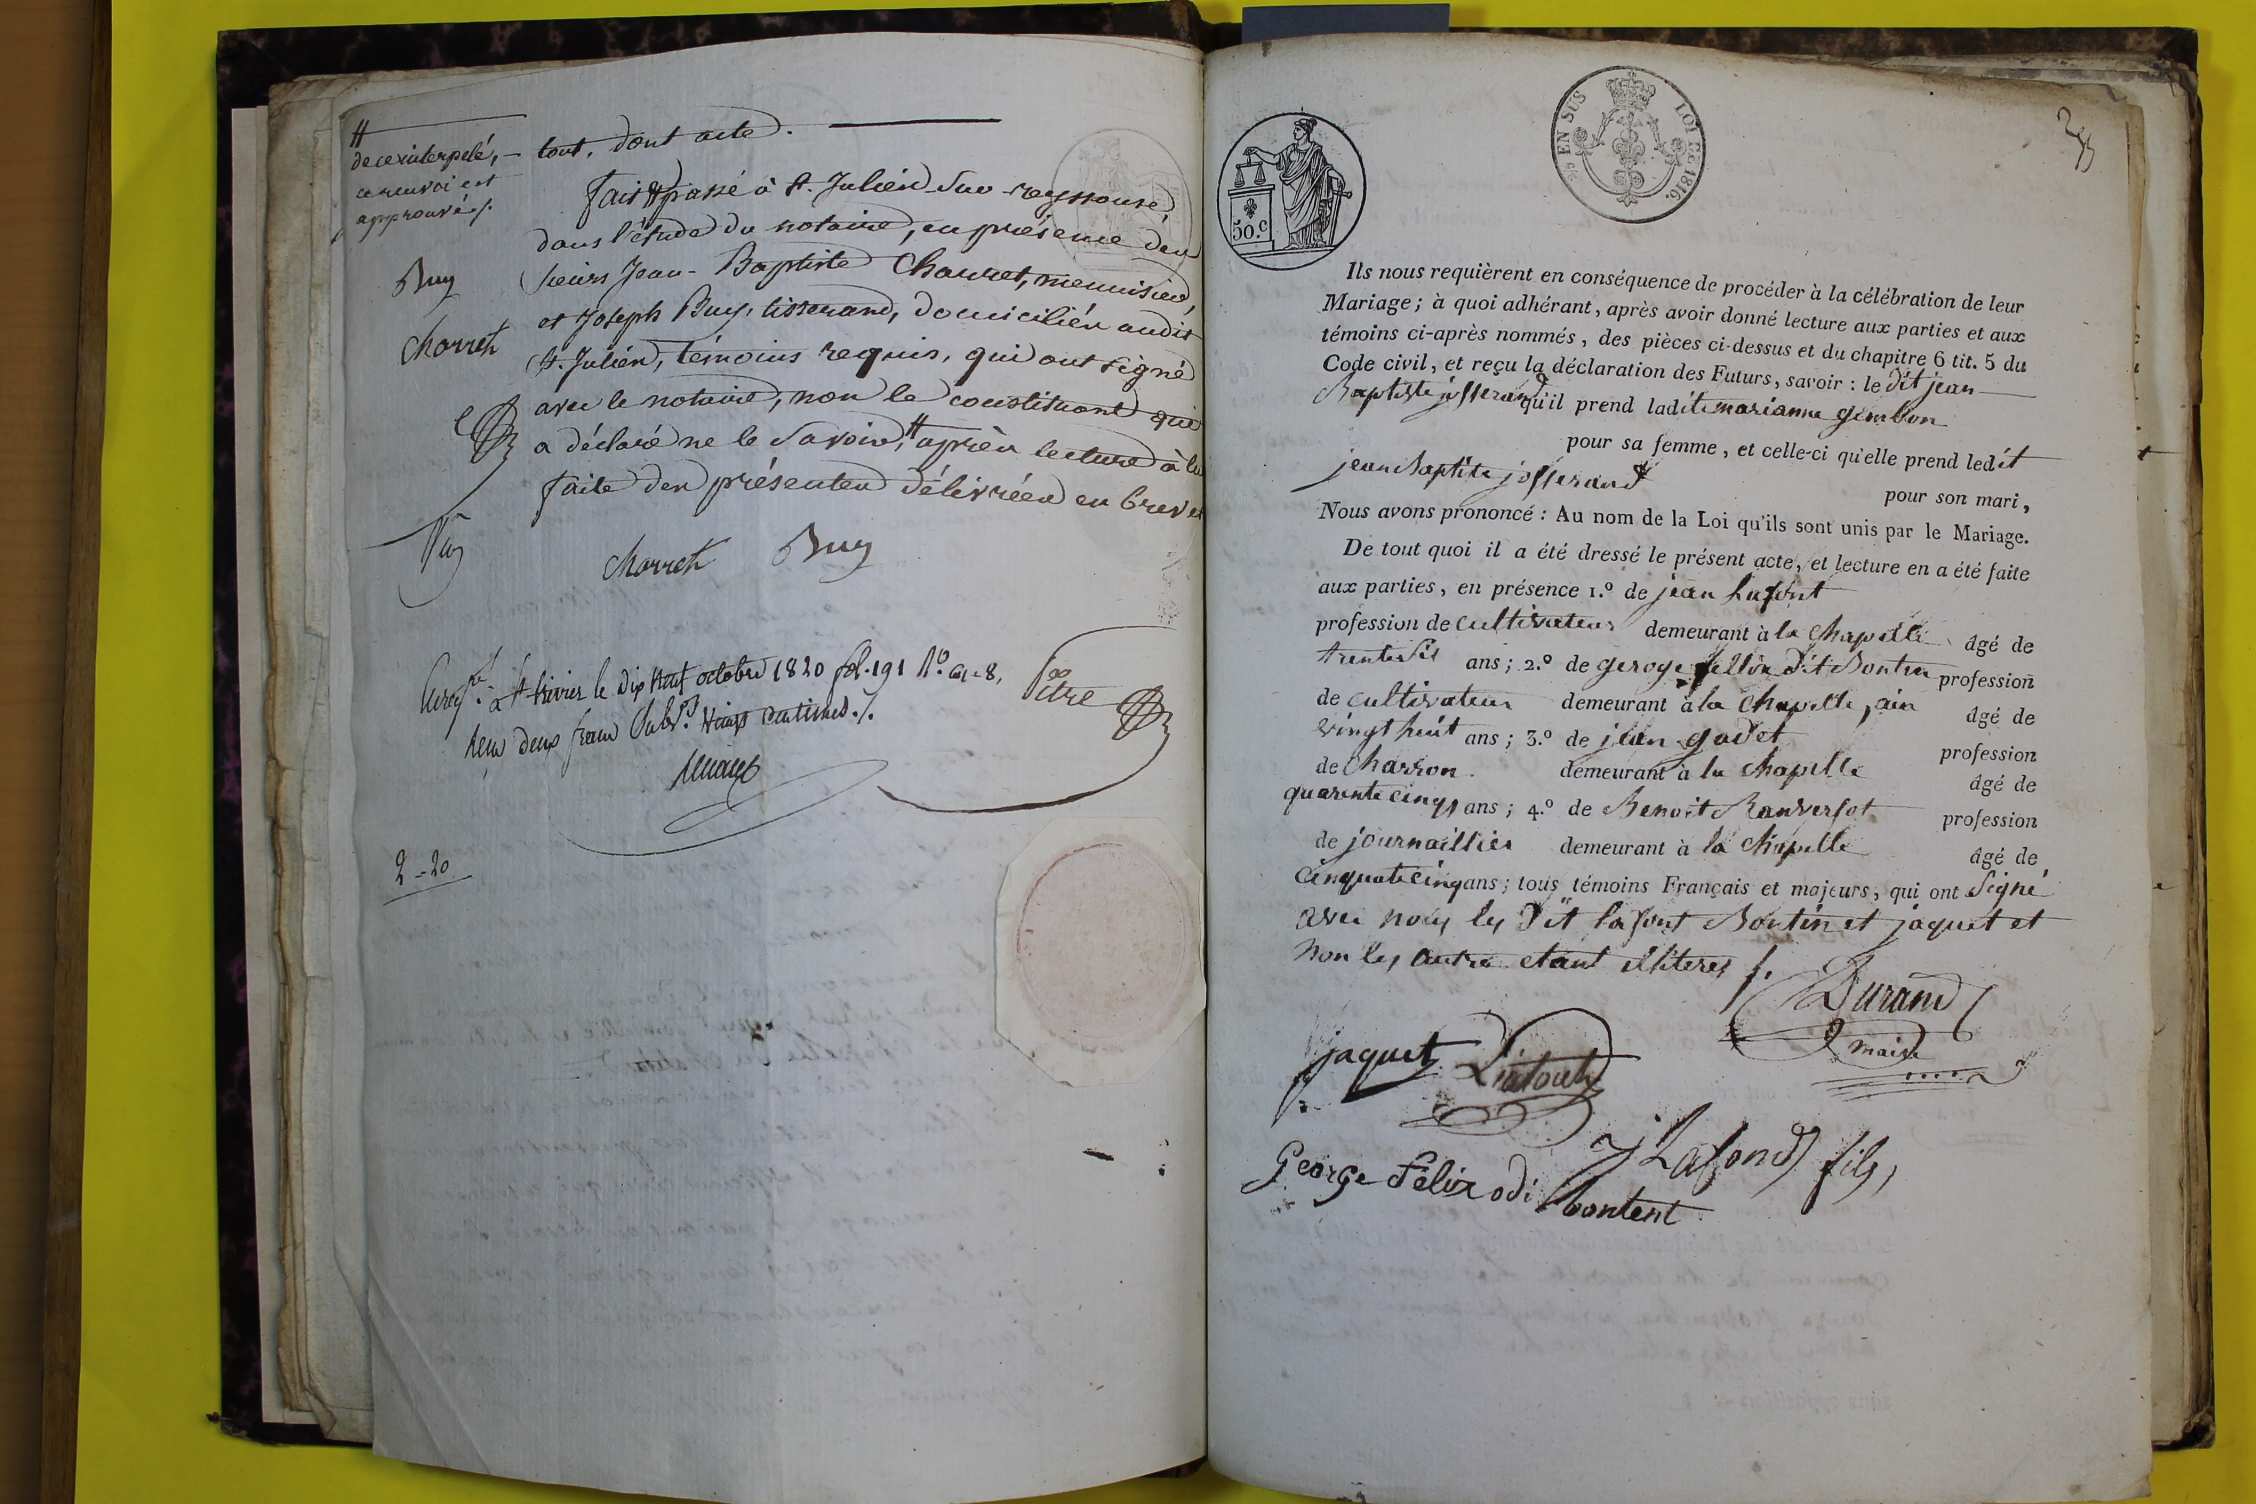 #
de ce interpelé, –
ce renvoi est
approuvé ./.
Buy
Charret
tout, dont acte.
fait & passé à St. Julien-Sur-reyssouse,
dans l'étude du notaire, en présence des
sieurs Jean-Baptiste Charret, menuisier,
et Joseph Buy, tisserand, domiciliés audit
St. Julien, témoins requis, qui ont signé
avec le notaire, non le constituant qui
a déclaré ne le savoir, # après lecture à lui
faite des présentes délivrées en brevet
Charret Buy
à St trivier le dix neuf octobre 1820 fol. 191
Reçu deux francs Subv.on vingt centimes ./.
2-20
EN SUS LOI DE 1816.
50.c
Ils nous requièrent en conséquence de procéder à la célébration de leur
Mariage; à quoi adhérant, après avoir donné lecture aux parties et aux
témoins ci-après nommés, des pièces ci-dessus et du chapitre 6 tit. 5 du
Code civil, et reçu la déclaration des Futurs, savoir : le dit jean
Baptiste josserand qu'il prend ladite marianne gembon
pour sa femme, et celle-ci qu'elle prend ledit
jean Baptiste josserand
pour son mari,
Nous avons prononcé : Au nom de la Loi qu'ils sont unis par le Mariage.
De tout quoi il a été dressé le présent acte, et lecture en a été faite
aux parties, en présence 1.º de jean Lafont
profession de cultivateur demeurant à la Chapelle âgé de
trente six ans; 2.º de geroge fellix dit Bontin profession
de cultivateur demeurant à la Chapelle, ain âgé de
vingt huit ans; 3.º de jean gadet profession
de Charron demeurant à la Chapelle âgé de
quarente cinq ans; 4.º de Benoit Ranversot profession
de journaillier demeurant à la Chapelle âgé de
cinquate cinq ans; tous témoins Français et majeurs, qui ont Signé
avec nous les dit lafont Bontin et jaquet et
non les autre etant illiteres ./.
Durand
maire
jaquet
J Lafond fils,
George Félix odi bontent